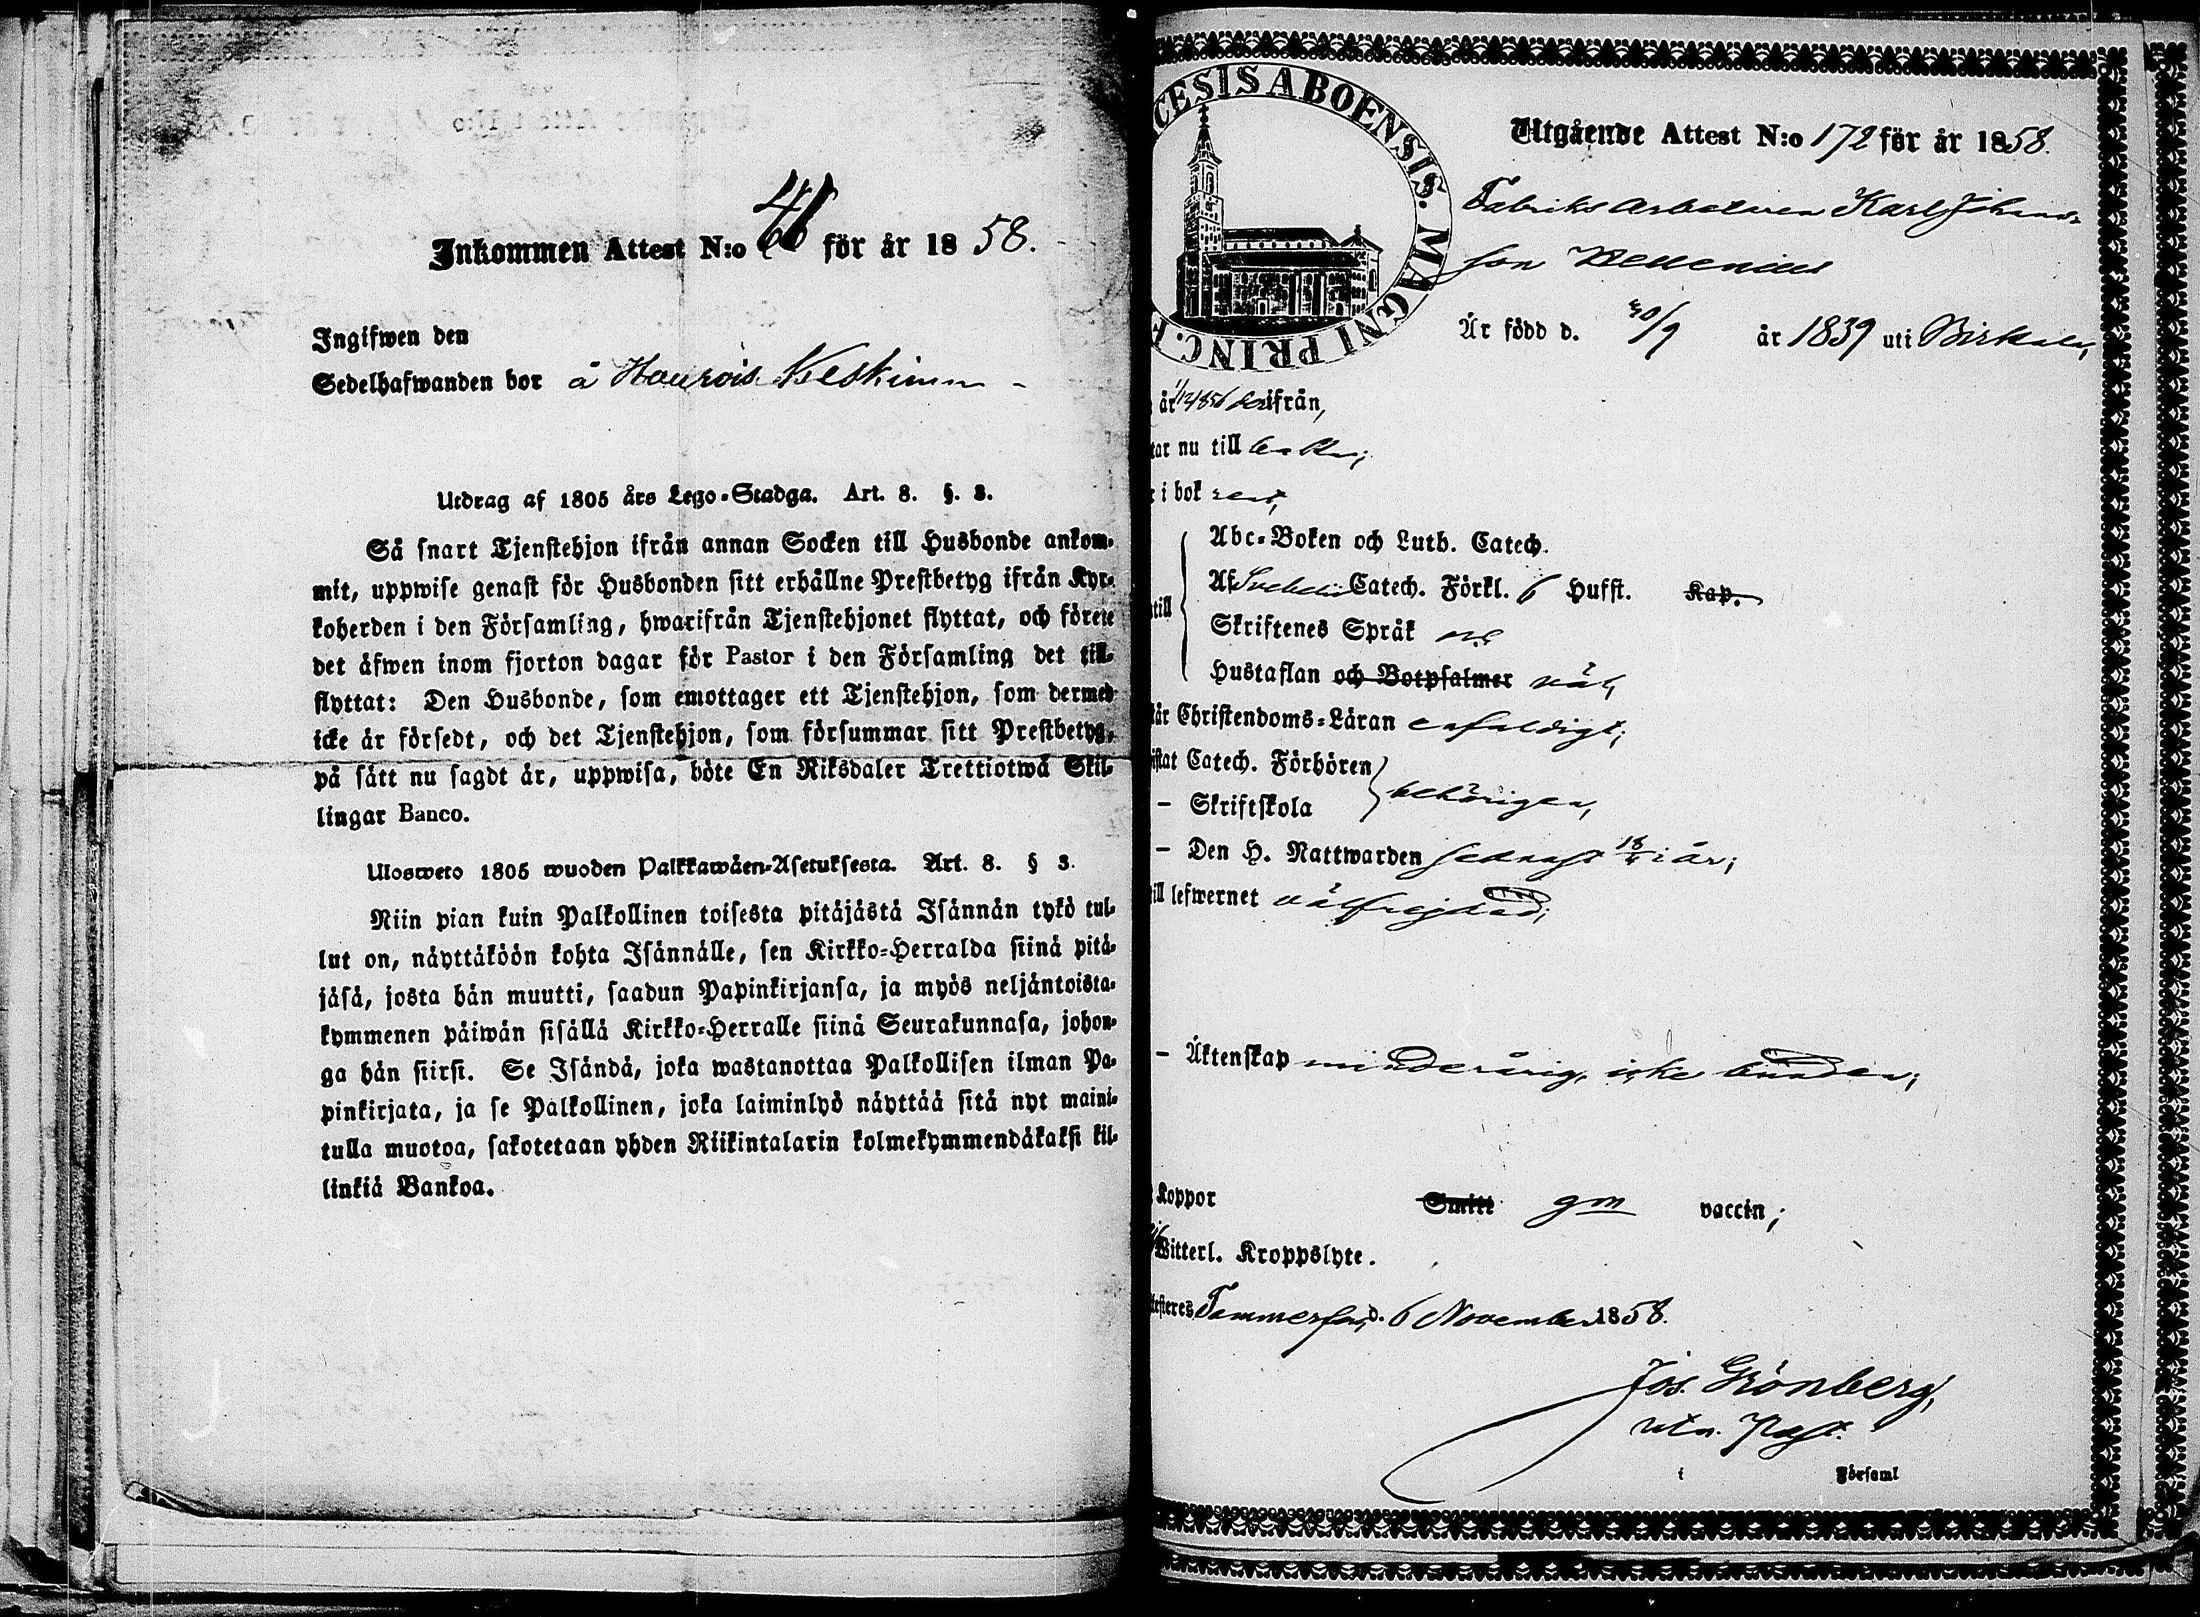 Inkommen Attest N:o 46 för år 1858.
Ingifwen den
Sedelhafwanden bor å Haurois Keskinen
Utdrag af 1805 års Lego-Stadga. Art. 8. §. 3.
Så snart Tjenstehjon ifrån annan Socken till Husbonde ankom-
mit, uppwise genast för Husbonden sitt erhållne Prestbetyg ifrån Kyr-
koherden i den Församling, hwarifrån Tjenstehjonet flyttat, och förete
det äfwen inom fjorton dagar för Pastor i den Församling det till-
flyttat: Den Husbonde, som emottager ett Tjenstehjon, som dermed
icke är försedt, och det Tjenstehjon, som försummar sitt Prestbetyg,
på sätt nu sagdt är, uppwisa, böte En Riksdaler Trettiotwå Skil-
lingar Banco.
Ulosweto 1805 wuoden Palkkawäen-Asetuksesta. Art. 8. § 3.
Niin pian kuin Palkollinen toisesta pitäjästä Isännän tykö tul-
lut on, näyttäköön kohta Isännälle, sen Kirkko-Herralda siinä pitä-
jäsä, josta hän muutti, saadun Papinkirjansa, ja myös neljäntoista-
kymmenen päiwän sisällä Kirkko-Herralle siinä Seurakunnasa, johon-
ga hän siirsi. Se Isändä, joka wastanottaa Palkollisen ilman Pa-
pinkirjata, ja se Palkollinen, joka laiminlyö näyttää sitä nyt maini-
tulla muotoa, sakotetaan yhden Riikintalarin kolmekymmendäkaksi kil-
linkiä Bankoa.
CESIS ABOENSIS. MAGNI PRINC. F
Utgående Attest N:o 172 för år 1858.
Fabriks Arbetaren Karl Johans-
son
Är född d. 30/9 år 1839 uti Birkala,
år 1/12 1856 derifrån,
tar nu till
i bok rent,
Abc-Boken och Luth. Catech.
Af Svebelii Catech. Förkl. 6 Hufst. Kap.
Skriftenes Språk
till
Hustaflan och Botpsalmer väl,
år Christendoms-Läran enfaldigt;
istat Catech. Förhören
behörigen,
– Skriftskola
– Den H. Nattwarden sednast i år;
ill lefwernet välfrejdad;
– Äktenskap minderårig, icke bunden;
Koppor Smitt gm vaccin;
Witterl. Kroppslyte.
esteres Tammerfors d. 6 November 1858.
Jos. Grönberg,
vtn. Past.
i Församl